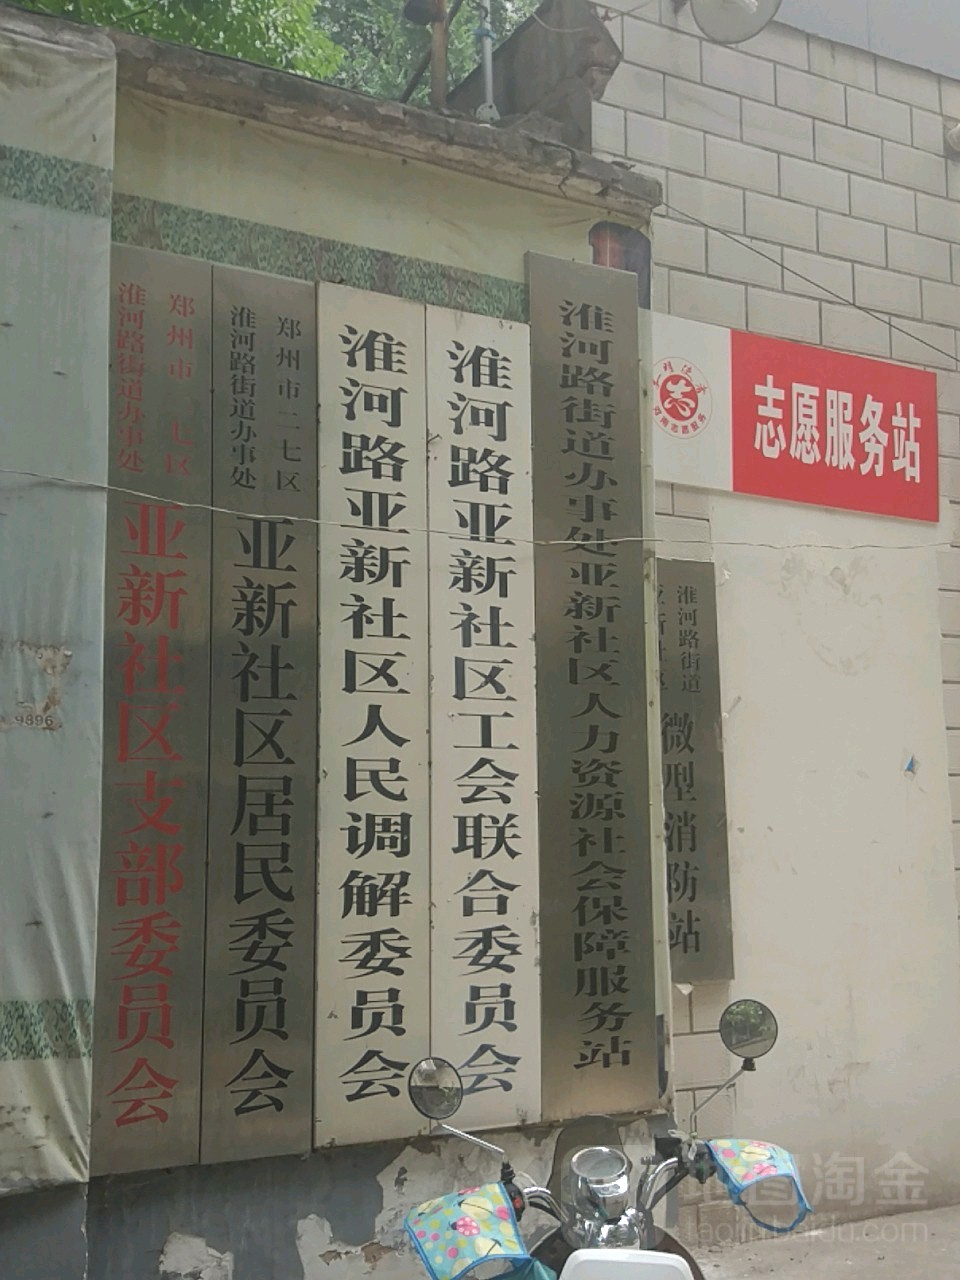 郑州市 七区
淮河路街道办事处
亚新社区支部委员会
郑州市二七区
淮河路街道办事处
亚新社区居民委员会
淮河路亚新社区人民调解委员会
淮河路亚新社区工会联合委员会
淮河路街道办事处亚新社区人力资源社会保障服务站
志愿服务站
淮河路街道
亚新社区
微型消防站
9896
地图淘金
taojin.baidu.com